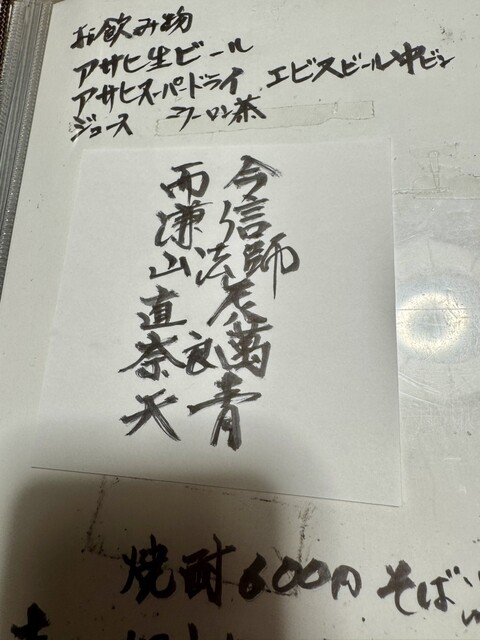 お飲み物
アサヒ生ビール
アサヒスーパードライ エビスビール中ビン
ジュース ウーロン茶
而今
謙信
山法師
直尺
奈良萬
天青
焼酎600円 そば